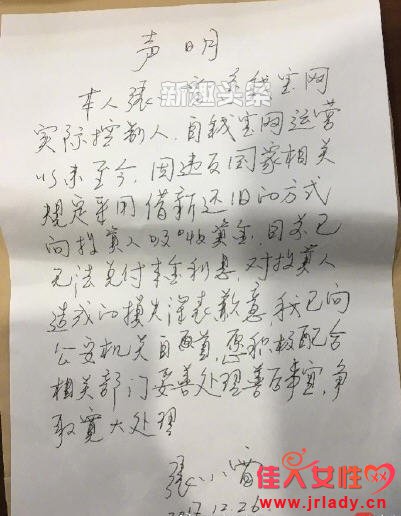 声明
本人張小雷 為钱宝网
实际控制人,自钱宝网运营
以来至今,因违反国家相关
规定采用借新还旧的方式
向投资人吸收资金,目前已
无法兑付本金利息,对投资人
造成的损失深表歉意,我已向
公安机关自首,愿积极配合
相关部门妥善处理善后事宜,争
取寬大处理
張小雷
2017.12.26
新趣头条
佳人女性网
www.jrlady.cn